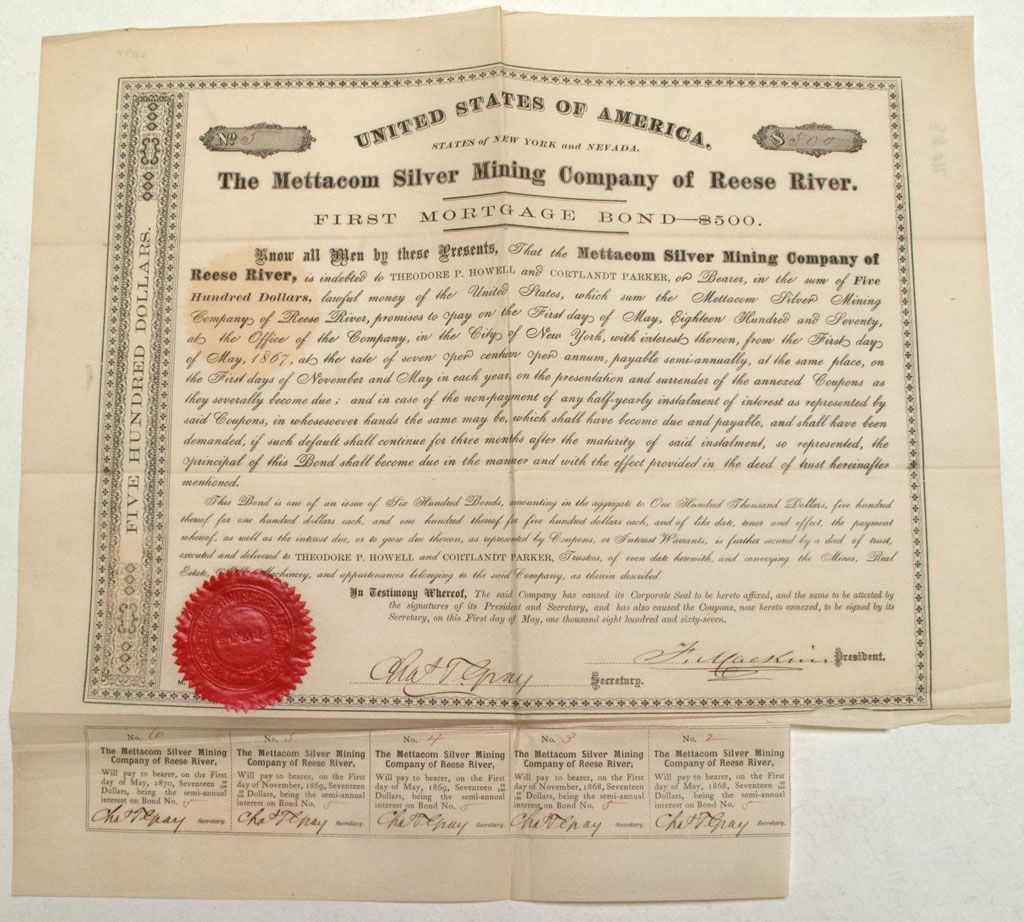 No 5
$ 500
UNITED STATES OF AMERICA.
STATES of NEW YORK and NEVADA.
The Mettacom Silver Mining Company of Reese River.
FIRST MORTGAGE BOND—$500.
FIVE HUNDRED DOLLARS.
Know all Men by these Presents, That the Mettacom Silver Mining Company of
Reese River, is indebted to THEODORE P. HOWELL and CORTLANDT PARKER, or Bearer, in the sum of Five
Hundred Dollars, lawful money of the United States, which sum the Mettacom Silver Mining
Company of Reese River, promises to pay on the First day of May, Eighteen Hundred and Seventy,
at the Office of the Company, in the City of New York, with interest thereon, from the First day
of May, 1867, at the rate of seven per centum per annum, payable semi-annually, at the same place, on
the First days of November and May in each year, on the presentation and surrender of the annexed Coupons as
they severally become due; and in case of the non-payment of any half-yearly instalment of interest as represented by
said Coupons, in whosesoever hands the same may be, which shall have become due and payable, and shall have been
demanded, if such default shall continue for three months after the maturity of said instalment, so represented, the
principal of this Bond shall become due in the manner and with the effect provided in the deed of trust hereinafter
mentioned.
This Bond is one of an issue of Six Hundred Bonds, amounting in the aggregate to One Hundred Thousand Dollars, five hundred
thereof for one hundred dollars each, and one hundred thereof for five hundred dollars each, and of like date, tenor and effect, the payment
whereof, as well as the interest due, or to grow due thereon, as represented by Coupons, or Interest Warrants, is further secured by a deed of trust,
executed and delivered to THEODORE P. HOWELL and CORTLANDT PARKER, Trustees, of even date herewith, and conveying the Mines, Real
Estate, Machinery, and appurtenances belonging to the said Company, as therein described.
In Testimony Whereof, The said Company has caused its Corporate Seal to be hereto affixed, and the same to be attested by
the signatures of its President and Secretary, and has also caused the Coupons, now hereto annexed, to be signed by its
Secretary, on this First day of May, one thousand eight hundred and sixty-seven.
F. Mackin President.
Chas T Gray Secretary.
No. 6
The Mettacom Silver Mining
Company of Reese River,
Will pay to bearer, on the First
day of May, 1870, Seventeen 50/100
Dollars, being the semi-annual
interest on Bond No. 5
Chas T Gray Secretary.
No. 5
The Mettacom Silver Mining
Company of Reese River,
Will pay to bearer, on the First
day of November, 1869, Seventeen
50/100 Dollars, being the semi-annual
interest on Bond No. 5
Chas T Gray Secretary.
No. 4
The Mettacom Silver Mining
Company of Reese River,
Will pay to bearer, on the First
day of May, 1869, Seventeen 50/100
Dollars, being the semi-annual
interest on Bond No. 5
Chas T Gray Secretary.
No. 3
The Mettacom Silver Mining
Company of Reese River,
Will pay to bearer, on the First
day of November, 1868, Seventeen
50/100 Dollars, being the semi-annual
interest on Bond No. 5
Chas T Gray Secretary.
No. 2
The Mettacom Silver Mining
Company of Reese River,
Will pay to bearer, on the First
day of May, 1868, Seventeen 50/100
Dollars, being the semi-annual
interest on Bond No. 5
Chas T Gray Secretary.